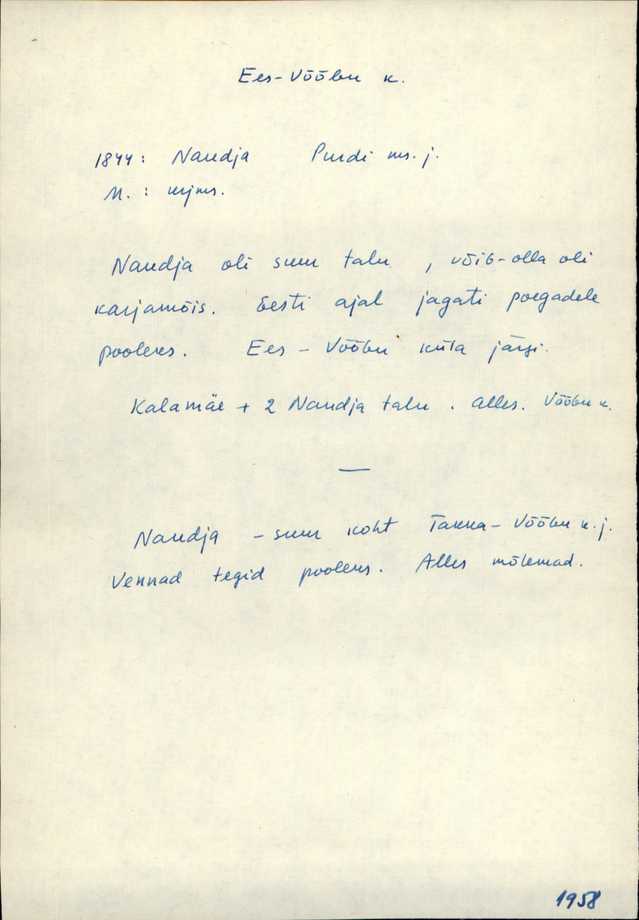 Ees-Vööbu k.
1844: Naudja Purdi ms. j.
M. : mjms.
Naudja oli suur talu, võib-olla oli
karjamõis. Eesti ajal jagati poegadele
pooleks. Ees - Vööbu küla järgi.
Kalamäe + 2 Naudja talu. Alles. Vööbu k.
—
Naudja - suur koht Takka-Vööbu k. j.
Vennad tegid pooleks. Alles mõlemad.
1958